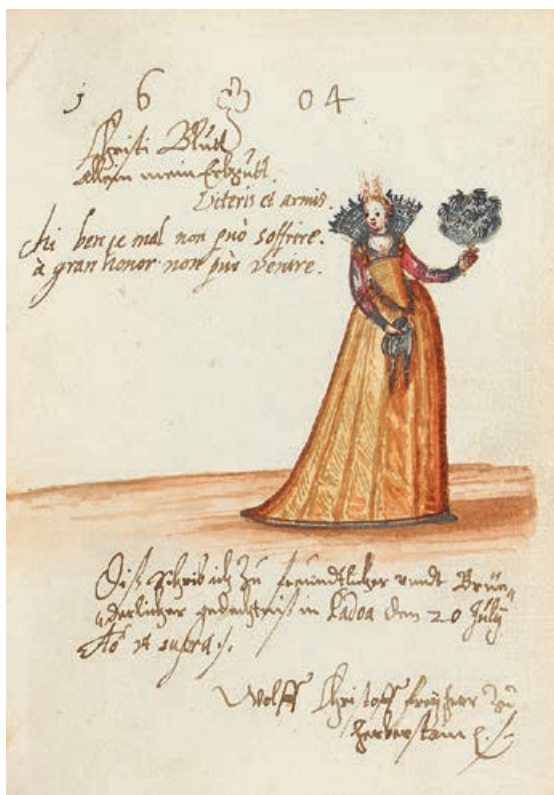 1 6 04
Christi Blutt
Allein mein Erbgutt.
Literis et armis.
Chi ben e mal non può soffrire.
à gran honor non può venire.
Diß schrib ich zu freundtlicher undt Brüe„
„derlicher gedechtniß in Padoa den 20 July
Ao ut supra
Wolff Christoff freyherr zu
Herberstain